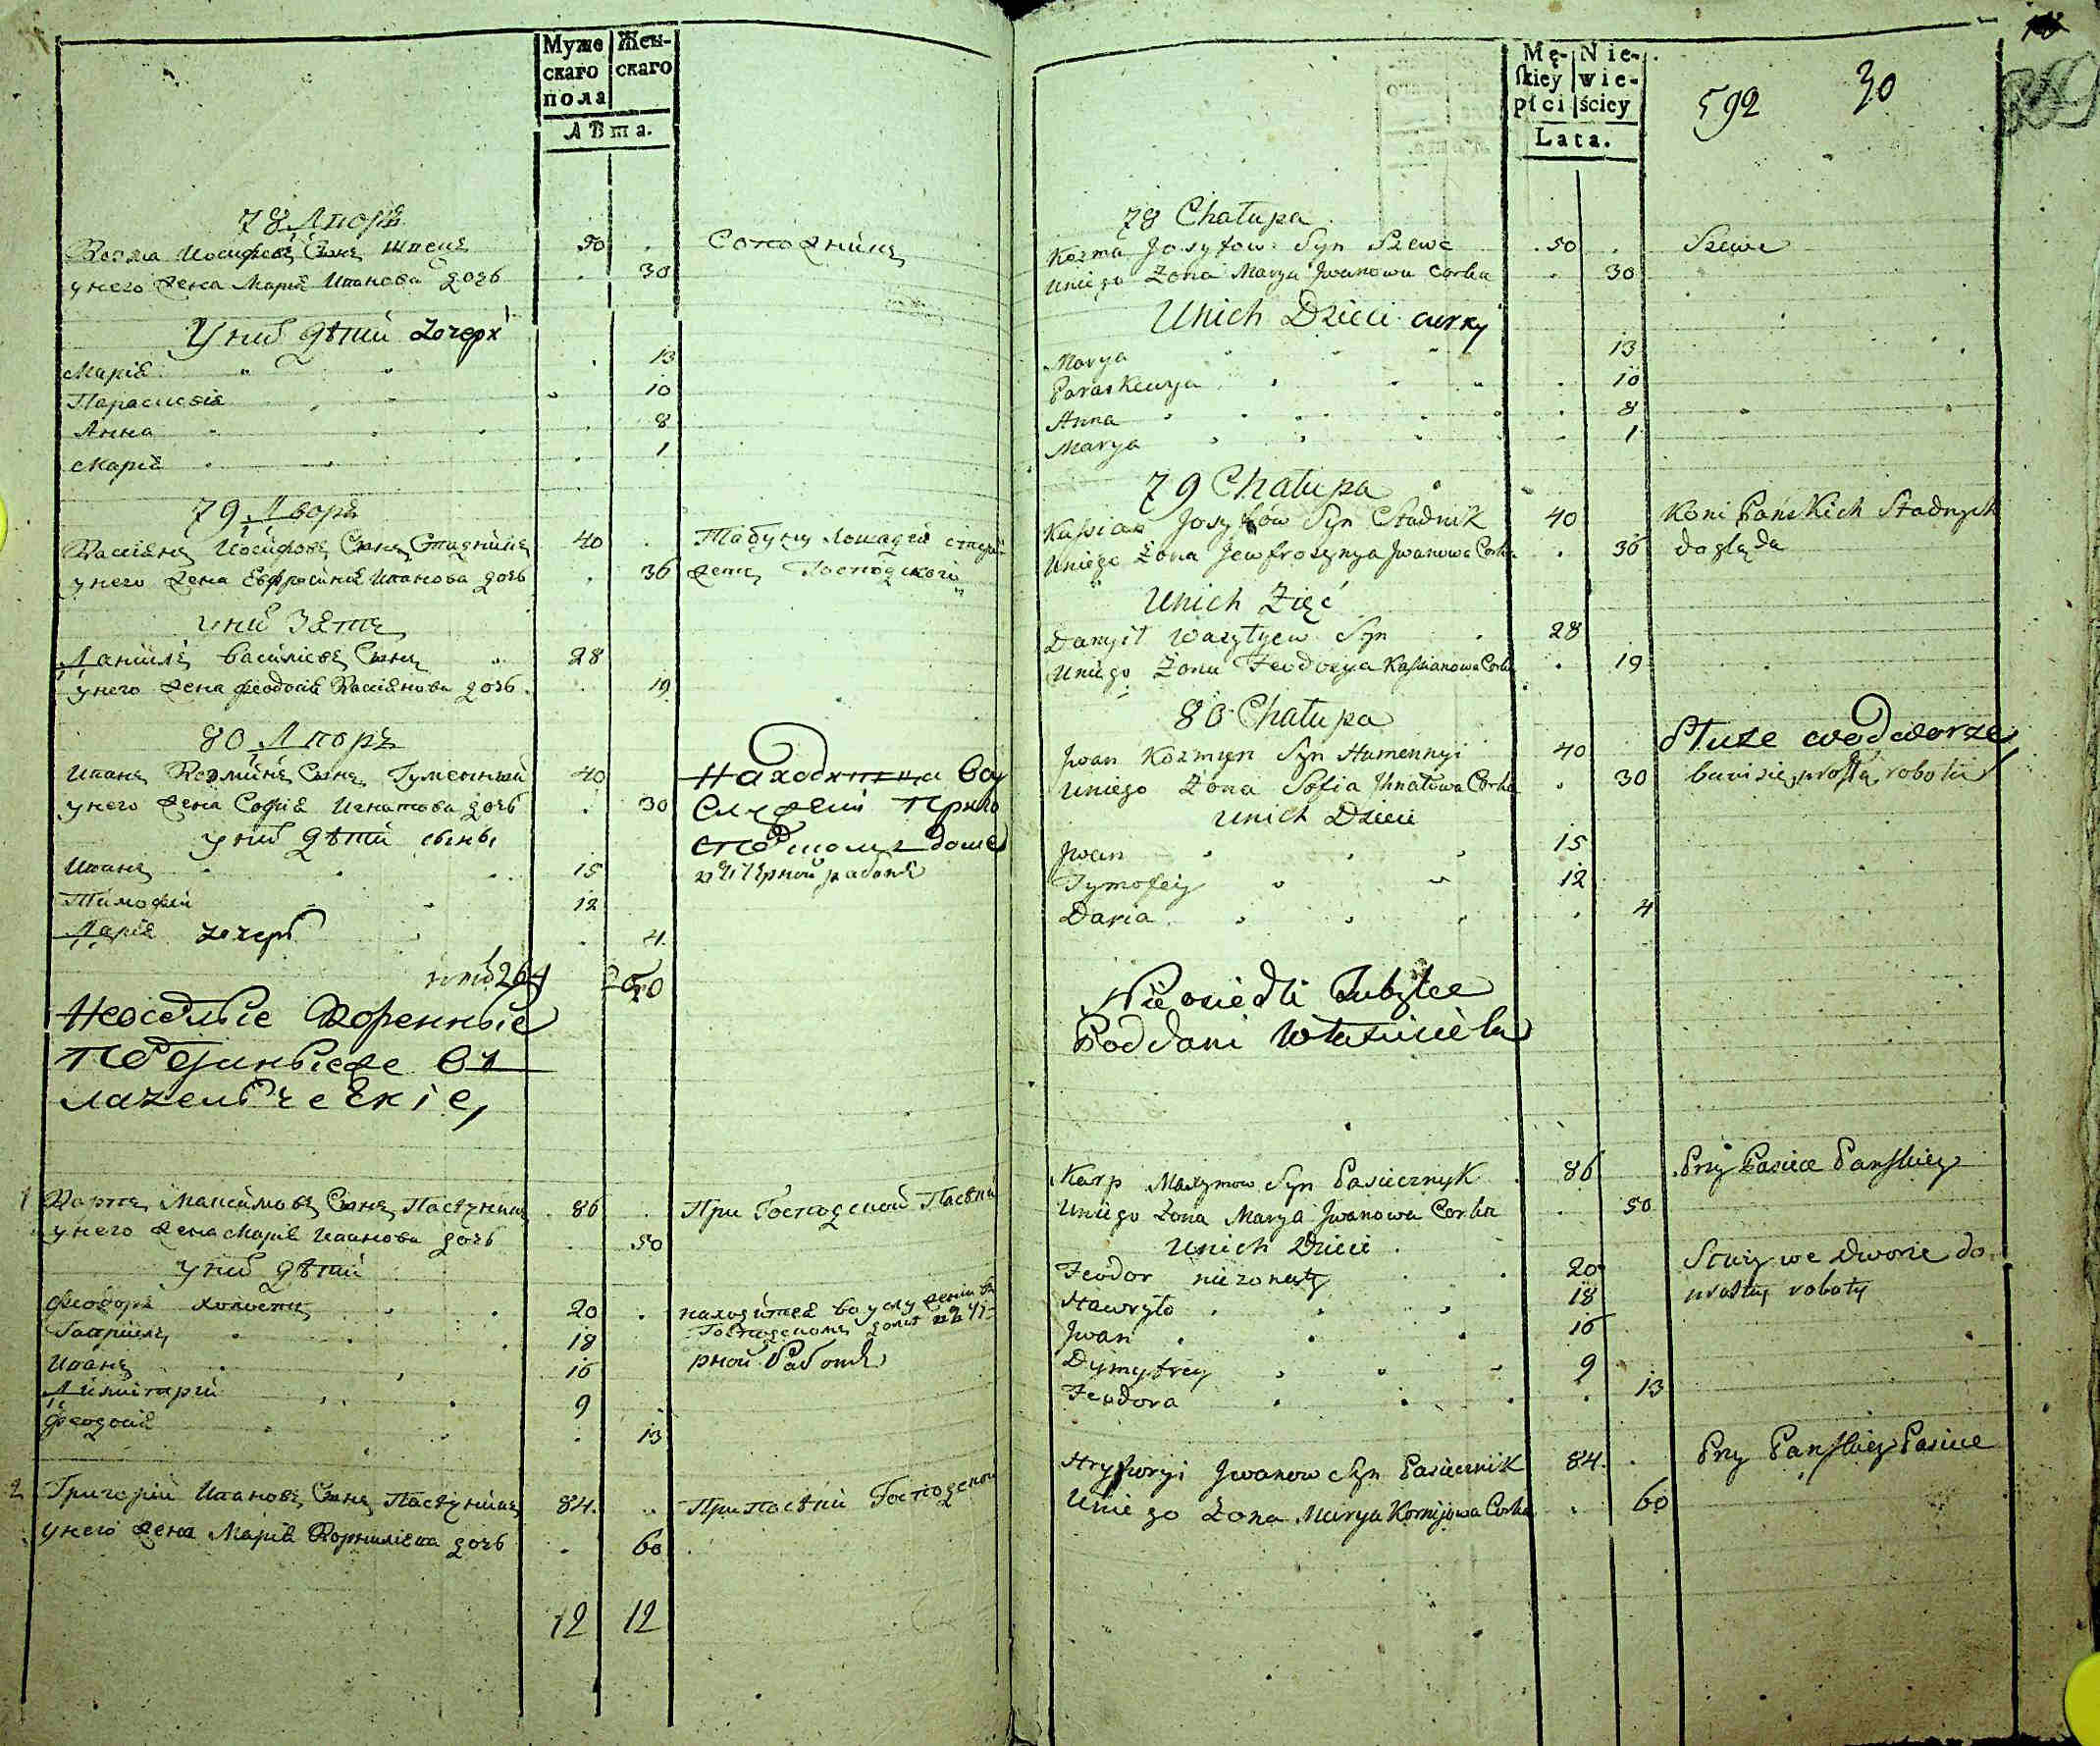 Муже
скаго
пола
Жен-
скаго
лѣта.
78 Дворъ
Козма Иосифовъ Сынъ Швецъ 50 .
у него жена Марія Иванова дочь . 30
Сапожникъ
У них дѣти дочери
Марія . 13
Параскевія . 10
Анна . 8
Марія . 1
79 Дворъ
Касіянъ Иосифовъ Сынъ Стадникъ 40 . Табуну лошадей стере-
у него жена Евфросинія Иванова дочь . 36 жетъ Господскаго
у них Зять
Даніилъ Василіевъ Сынъ 28
у него жена Феодосія Касіянова дочь . 19
80 Дворъ
Иванъ Козминъ Сынъ Гуменный 40 Находитца во у
у него жена Софія Игнатова дочь . 30 служеніи при го
у них дѣти сыны сподскомъ доме
Иванъ 15 в чорной работе
Тимофей 12
Дарія дочерь . 4
итого 264 250
Неоселые Коренные
подданые вла
даелческіе,
1 Карпъ Максимовъ Сынъ Пасѣчникъ 86 . При Господской Пасѣки
у него жена Марія Иванова дочь . 50
у них дѣти
Феодоръ холостъ 20 . находится во услуженіи въ
Гавріилъ 18 Господскомъ доме въ чо-
Иванъ 16 рной Работе
Димитрій 9
Феодосія . 13
2 Григорій Ивановъ Сынъ Пасѣчникъ 84 .. При пасѣки Господской
у него жена Марія Корниліева дочь . 60
12 12
Mę-
skiey
płci
Nie-
wie-
ściey
Lata.
592 30
78 Chałupa
Kozma Josyfow Syn Szewc 50 . Szewc
Uniego Żona Marya Jwanowa Corka . 30
Unich Dzieci curky
Marya 13
Paraskewya . 10
Anna . 8
Marya . 1
79 Chałupa
Kassian Josyfów Syn Stadnik 40 Koni Pańskich Stadnych
Uniego Żona Jewfrozynya Jwanowa Corka . 36 dogląda
Unich Zięć
Danyił Wasylyew Syn 28
Uniego Żona Feodosya Kassianowa Corka . 19
80 Chałupa
Jwan Kozmyn Syn Humennyi 40 Służe wodworze
Uniego Żona Sofia Ihnatowa Corka . 30 bawi się prostą robotą
Unich Dzieci
Jwan 15
Tymofiey 12
Daria . 4
Nie osiedli Zubylce
Poddani Własciciela
Karp Maxymow Syn Pasiecznyk 86 Przy Pasiece Panskiey
Uniego Żona Marya Jwanowa Corka . 50
Unich Dzieci
Feodor nieżonaty 20 Służy we dworze do
Hawryło 18 prostey roboty
Jwan 16
Dymytrey 9
Feodora . 13
Hryhoryi Jwanow Syn Pasiecznik 84 . Przy Panskiey Pasiece
Uniego Żona Marya Kornijowa Corka . 60